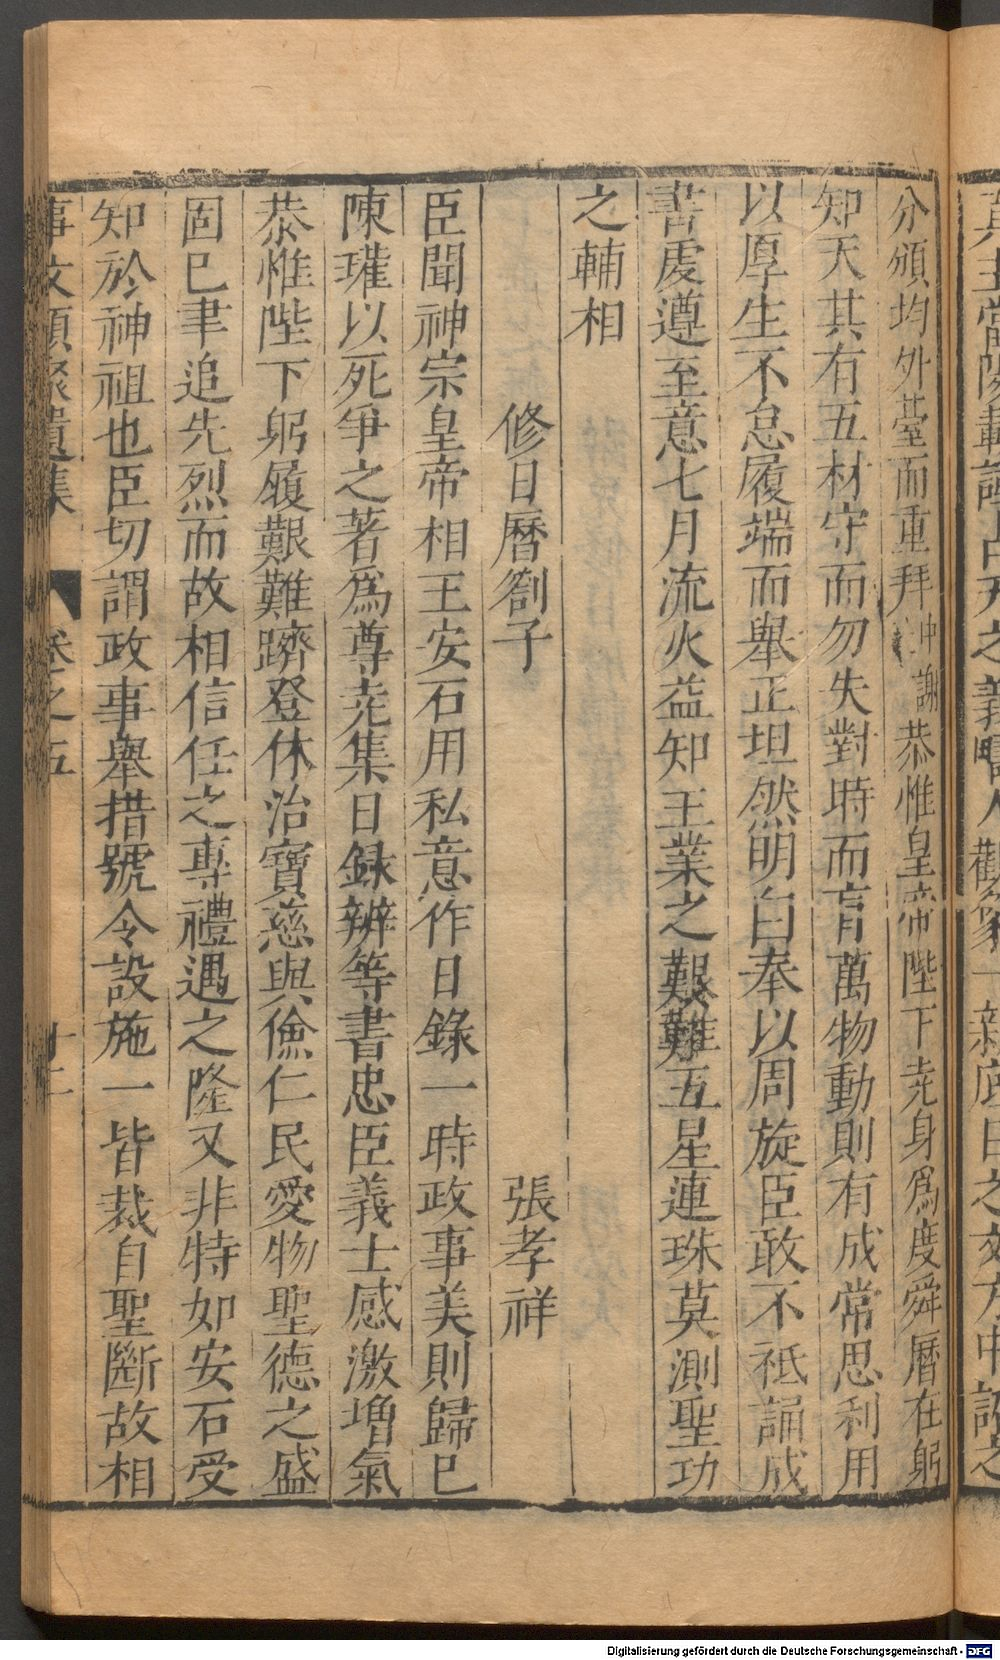 分頒均外臺而重拜中謝恭惟皇帝陛下尭身爲度舜曆在躬
知天其有五材守而勿失對時而育萬物動則有成常思利用
以厚生不怠履端而舉正坦然明白奉以周旋臣敢不祗誦成
書虔遵至意七月流火益知王業之艱難五星連珠莫測聖功
之輔相
修日曆劄子 張孝祥
臣聞神宗皇帝相王安石用私意作日錄一時政事美則歸已
陳瓘以死争之著爲尊尭集日録辨等書忠臣義士感激増氣
恭惟陛下躬履艱難躋登休治寶慈與儉仁民愛物聖德之盛
固已聿追先烈而故相信任之專禮遇之隆又非特如安石受
知於神祖也臣切謂政事舉措號令設施一皆裁自聖斷故相
事文類聚遺集 卷之五 十二
Digitalisierung gefördert durch die Deutsche Forschungsgemeinschaft - DFG